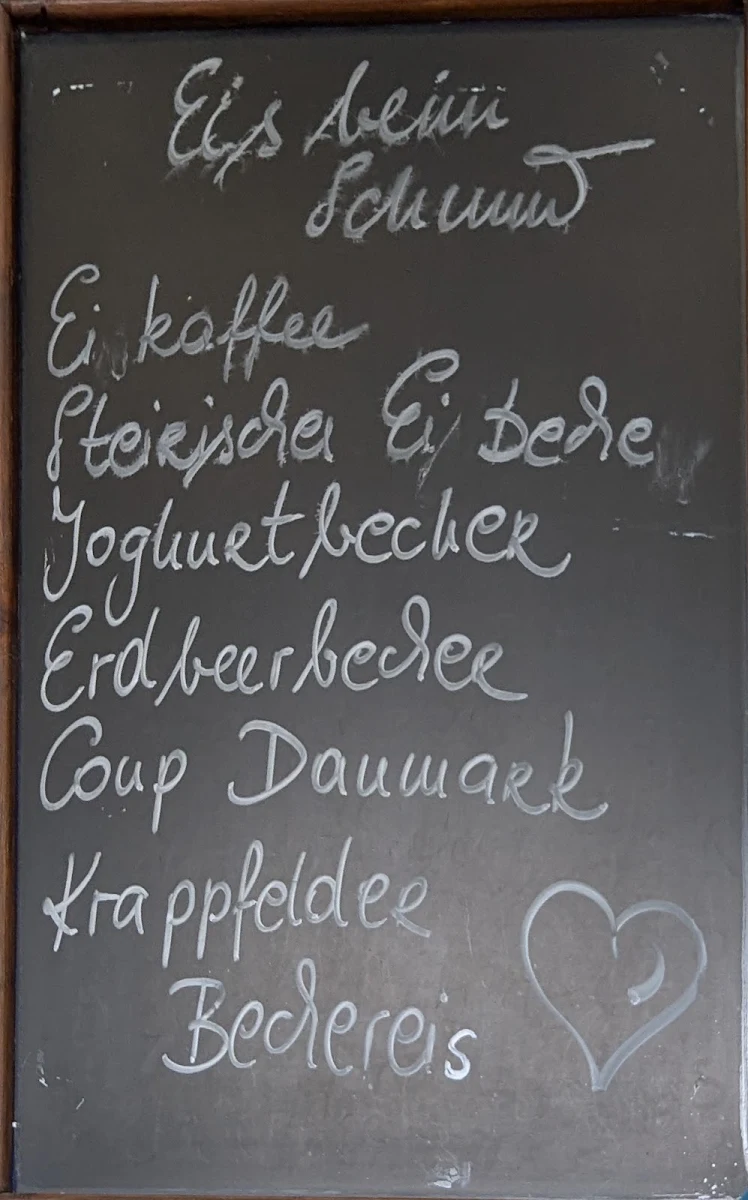 Eis beim
Schmid
Ei kaffee
Steirischer Ei beche
Joghurtbecher
Erdbeerbecher
Coup Danmark
Krappfelder
Bechereis